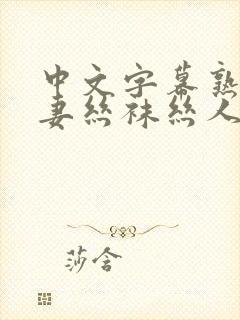 中文字幕熟
妻丝袜丝人
莎含